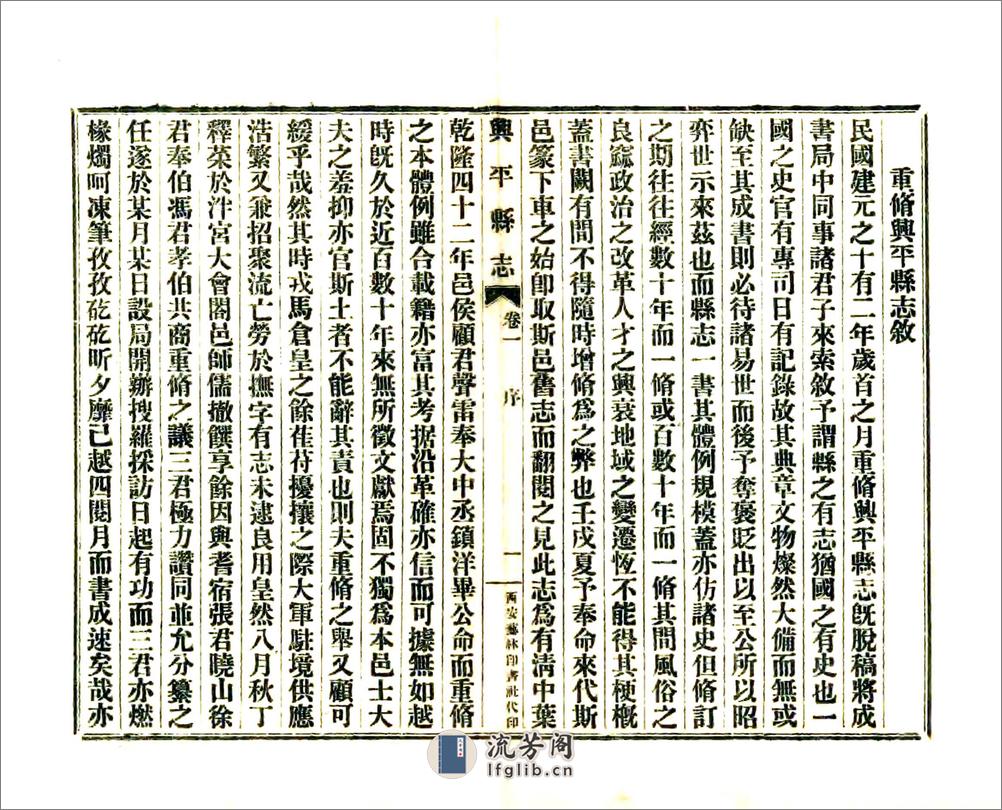 重脩興平縣志敘
民國建元之十有二年歲首之月重脩興平縣志旣脫稿將成
書局中同事諸君子來索敘予謂縣之有志猶國之有史也一
國之史官有專司日有記錄故其典章文物燦然大備而無或
缺至其成書則必待諸易世而後予奪褒貶出以至公所以昭
弈世示來茲也而縣志一書其體例規模蓋亦仿諸史但脩訂
之期往往經數十年而一脩或百數十年而一脩其間風俗之
良窳政治之改革人才之興衰地域之變遷恆不能得其梗槪
蓋書闕有間不得隨時增脩爲之弊也壬戌夏予奉命來代斯
邑篆下車之始卽取斯邑舊志而翻閱之見此志爲有淸中葉
興平縣志
卷一
序
一
西安藝林印書社代印
乾隆四十二年邑侯顧君聲雷奉大中丞鎮洋畢公命而重脩
之本體例雖合載籍亦富其考据沿革確亦信而可據無如越
時旣久於近百數十年來無所徵文獻焉固不獨爲本邑士大
夫之羞抑亦官斯土者不能辭其責也則夫重脩之舉又顧可
緩乎哉然其時戎馬倉皇之餘萑苻擾攘之際大軍駐境供應
浩繁又兼招聚流亡勞於撫字有志未逮良用皇然八月秋丁
釋菜於泮宮大會閤邑師儒撤饌享餘因與耆宿張君曉山徐
君奉伯馮君孝伯共商重脩之議三君極力讚同並允分纂之
任遂於某月某日設局開辦搜羅採訪日起有功而三君亦燃
椽燭呵凍筆孜孜矻矻昕夕靡已越四閱月而書成速矣哉亦
流芳阁
lfglib.cn